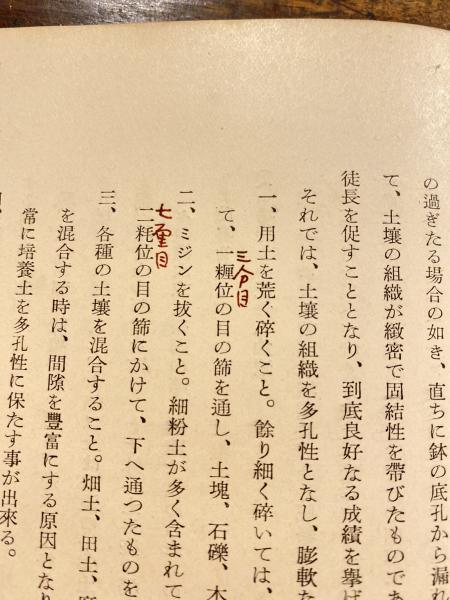 の過ぎたる場合の如き、直ちに鉢の底孔から漏れ
て、土壌の組織が緻密で固結性を帯びたものであ
徒長を促すこととなり、到底良好なる成績を擧げ
それでは、土壌の組織を多孔性となし、膨軟な
一、用土を荒ぐ碎くこと。餘り細く碎いては、
三分目
て、一糎位の目の篩を通し、土塊、石礫、木
二、ミジンを抜くこと。細粉土が多く含まれて
七厘目
二粍位の目の篩にかけて、下へ通つたものを
三、各種の土壌を混合すること。畑土、田土、
を混合する時は、間隙を豐富にする原因となり
常に培養土を多孔性に保たす事が出來る。